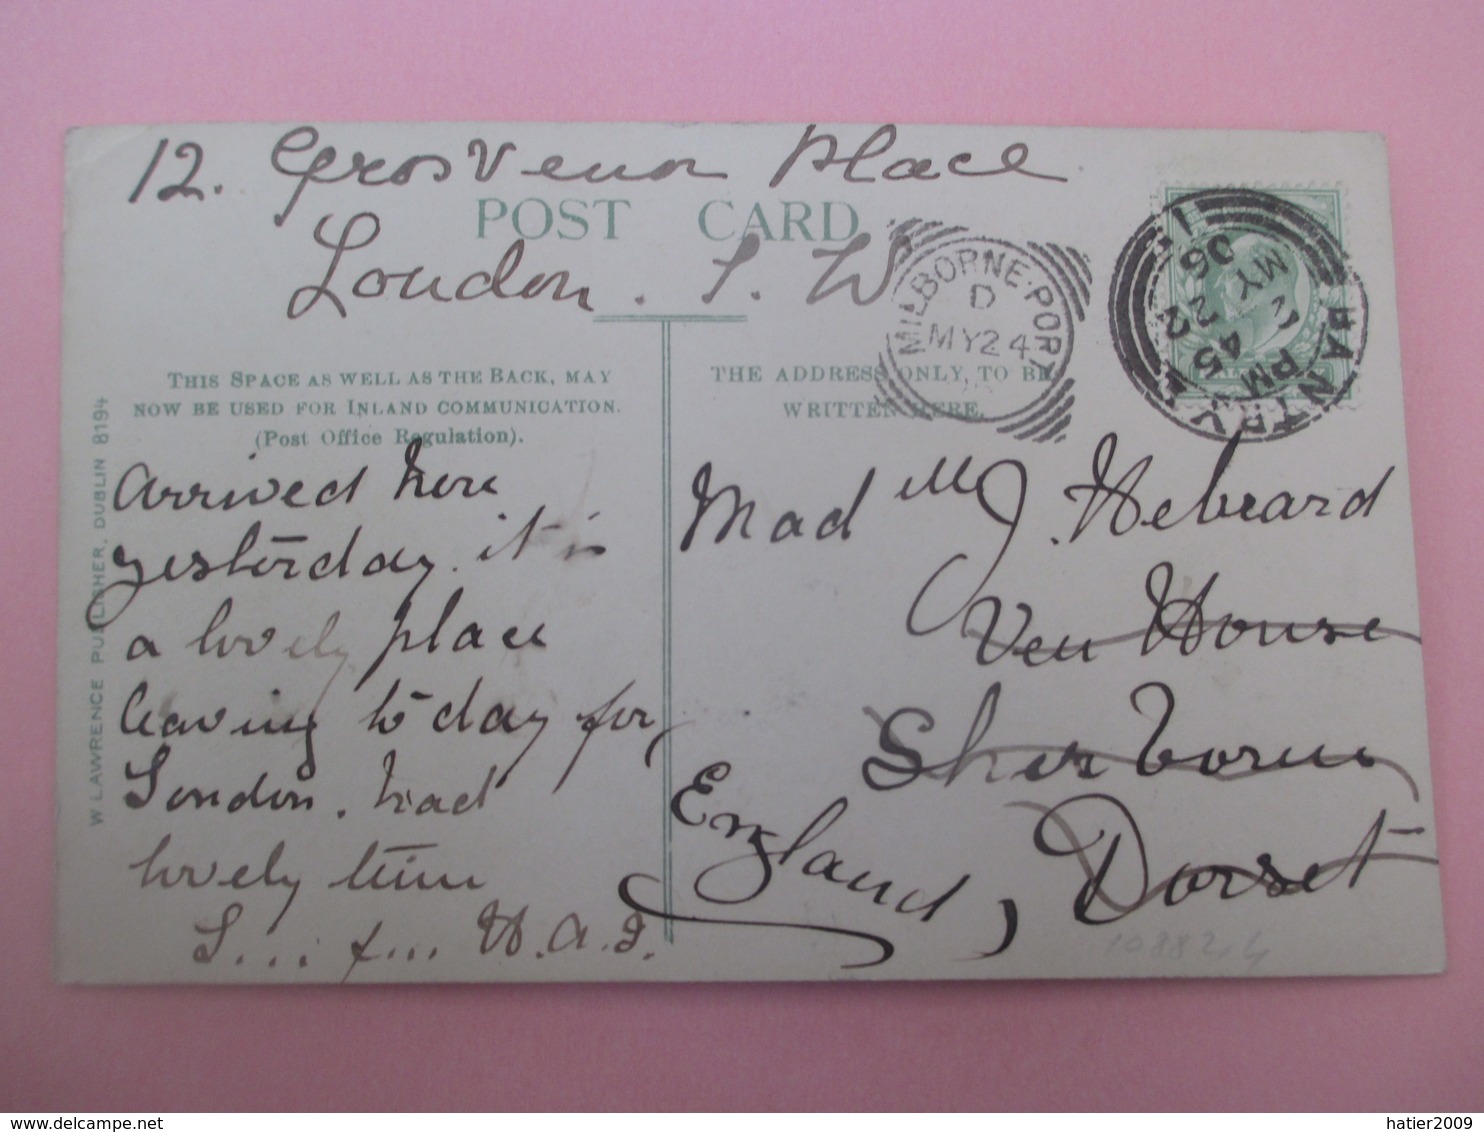 12. Grosvenor Place
London. S. W
POST CARD
MILBORNE·PORT
D
MY24
BANTRY
2 45 PM
MY 22
06
THIS SPACE AS WELL AS THE BACK, MAY
NOW BE USED FOR INLAND COMMUNICATION.
(Post Office Regulation).
THE ADDRESS ONLY, TO BE
WRITTEN HERE.
W LAWRENCE PUBLISHER, DUBLIN 8194
arrived here
yesterday. it is
a lovely place
leaving to day for
London. had
lovely time
L.... f... H.A.I.
Mad elle J. Hebrard
Ven House
Sherborne
Dorset
England,
10882.4
hatier2009